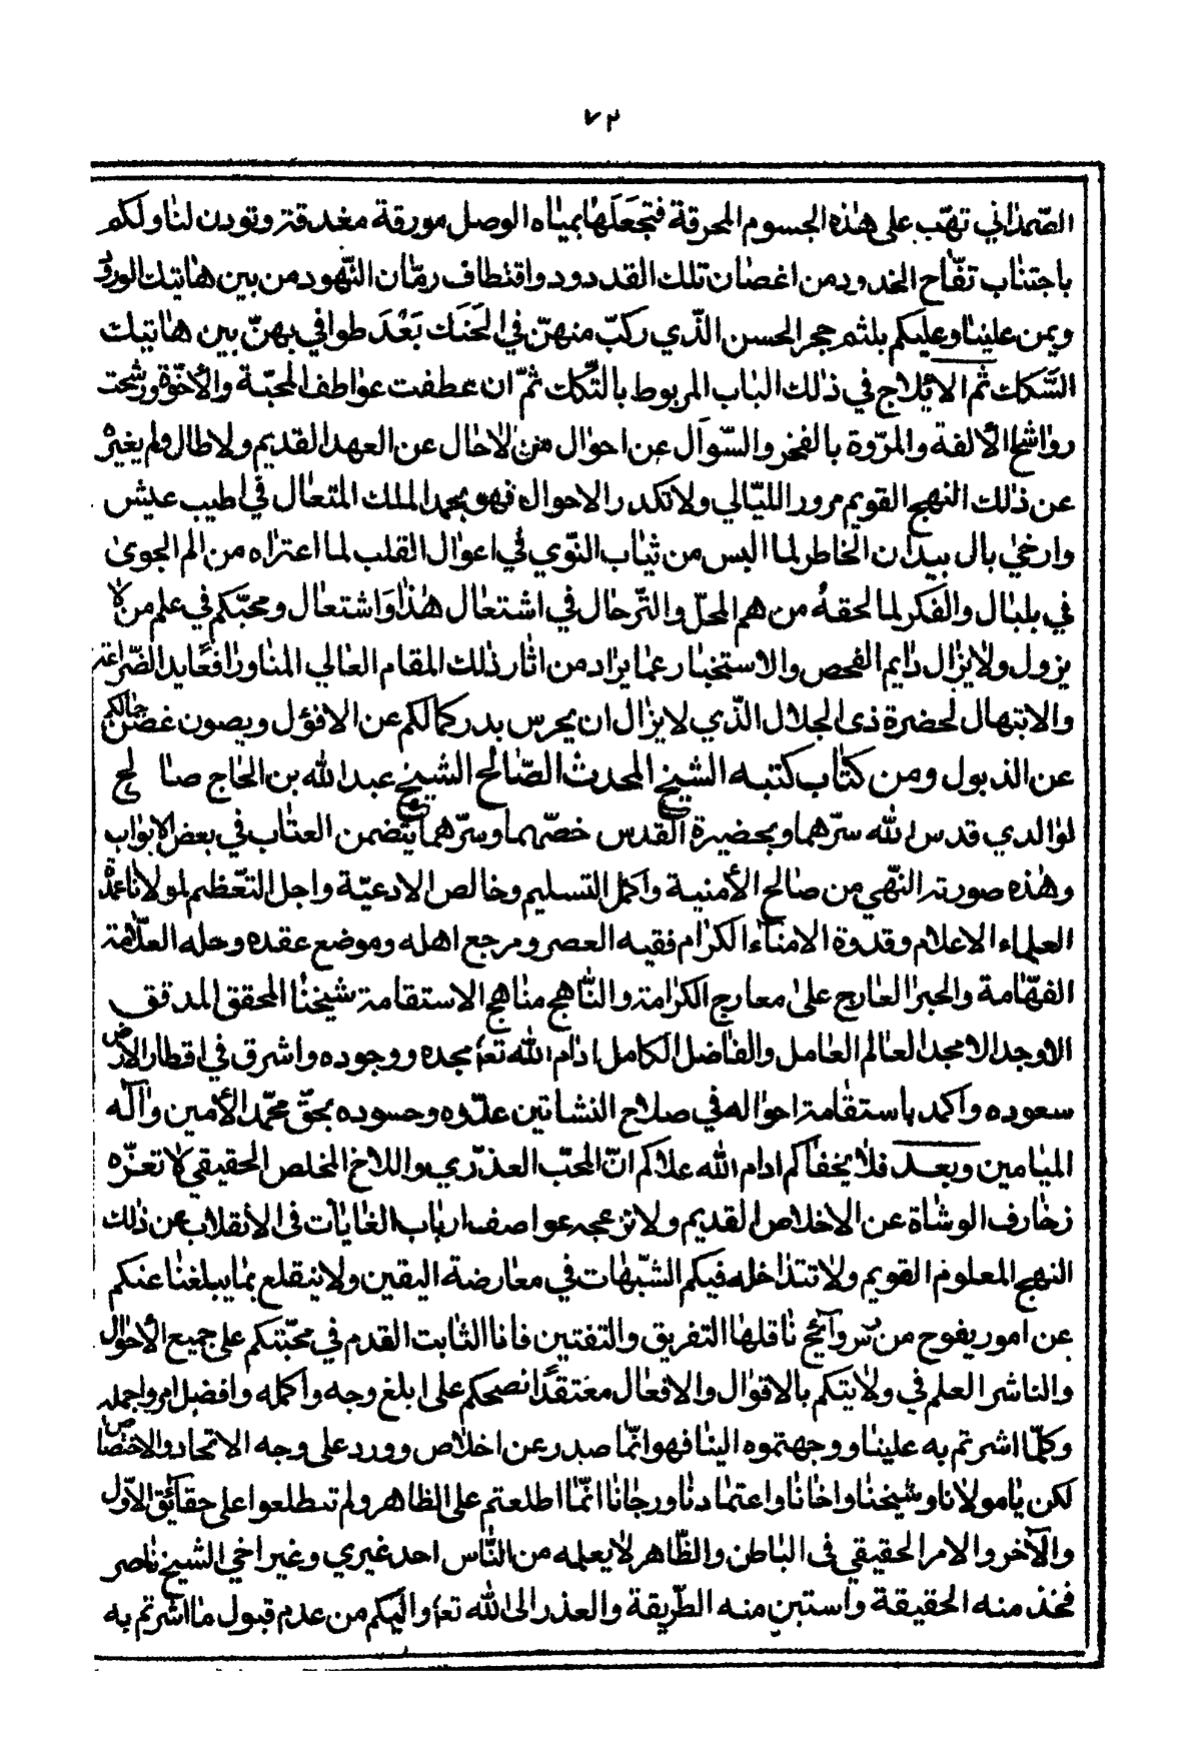 ٧٢
الصّمداني تهّب على هٰذه الجسوم المحرقة فتجعَلَها بمياه الوصل مورقة مغدقة وتوذن لنا ولكم
باجتناب تفّاح الخدود من اغصان تلك القدود واقتطاف رمّان النّهود من بين هاتيك الورود
ويمن علينا وعليكم بلثم حجر الحسن الذّي ركبّ منهنّ في الحَنَك بَعْدَ طوافي بهنّ بين هاتيك
السّكك ثم الايلاج في ذلك الباب المربوط بالتّكك ثمّ ان عطفت عواطف المحبّة والأخوّة ورشحت
رواشح الألفة والمرّوة بالفحر والسّوال عن احوال من لاحال عن العهد القديم ولا طال ولم يغيرْه
عن ذلك النهج القويم مرور الليّالي ولا تكدر الاحوال فهو بحمد الملك المتعال في اطيب عيش
وارخىٰ بال بيدان الخاطر لما البس من ثياب النّوي في اعوال القلب لما اعتراه من الم الجوىٰ
في بلبال والفكر لما لحقهُ من هم المحلّ والتّرحال في اشتعال هٰذا واشتعال ومحبّكم في علم من لا
يزول ولا يزال دايم الفحص والاستخبار عما يراد من اثار ذلك المقام العالي المنار رافعًا يد الضّراعة
والابتهال لحضرة ذى الجلال الذّي لا يزال ان يحرس بدر كمالكم عن الافؤل ويصون غصن جمالكم
عن الذبول ومن كتاب كتبه الشيخ المحدث الصّالح الشيخ عبدالله بن الحاج صالح
لوالدي قدس الله سرّهما وبحضيرة القدس خصّهما وسرّهما يتضمن العتاب في بعض الابواب
وهٰذه صورته النّهي من صالح الأمنية واكمل التسليم وخالص الادعيّة واجل التعّظيم لمولانا عمدة
العلماء الاعلام وقدوة الامناء الكرام فقيه العصر ومرجع اهله وموضع عقده وحله العلّامة
الفهّامة والحبر العارج علىٰ معارج الكرامة والنّاهج مناهج الاستقامة شيخنا المحقق المدقق
الاوحد الامجد العالم العامل والفاضل الكامل ادام الله تعا مجده ووجوده واشرق في اقطار الارض
سعوده واكمد باستقامة احواله في صلاح النشاتين عدّوه وحسوده بحقّ محمّد الأمين وآله
الميامين وبعد فلا يخفاكم ادام الله علاكم انّ المحبّ العذرّي واللاخ المخلص الحقيقي لا تعزّه
زخارف الوشاة عن الاخلاص القديم ولا تزعجه عواصف ارباب الغايات فى الانقلاب عن ذلك
النهج المعلوم القويم ولا تتداخله فيكم الشّبهات في معارضة اليقين ولا ينقلع بما يبلغنا عنكم
عن امور يفوح من روآئح ناقلها التفريق والتفتين فانا الثابت القدم في محبّتكم على جميع الأحوال
والناشر العلم في ولايتكم بالاقوال والافعال معتقدًا نصحكم على ابلغ وجه واكمله وافضل امر واجمله
وكلّما اشرتم به علينا ووجهتموه الينا فهو انّما صدر عن اخلاص وورد على وجه الاتحاد والاختصاص
لكن يا مولانا وشيخنا واخانا واعتمادنا ورجانا انمّا اطلعتم على الظاهر ولم تطلعوا على حقآئق الاوّل
والآخر والامر الحقيقي فى الباطن والظّاهر لا يعلمه من النّاس احد غيري وغير اخي الشيخ ناصر
فخذ منه الحقيقة واستبن منه الطّريقة والعذر الىٰ الله تعا واليكم من عدم قبول ما اشرتم به